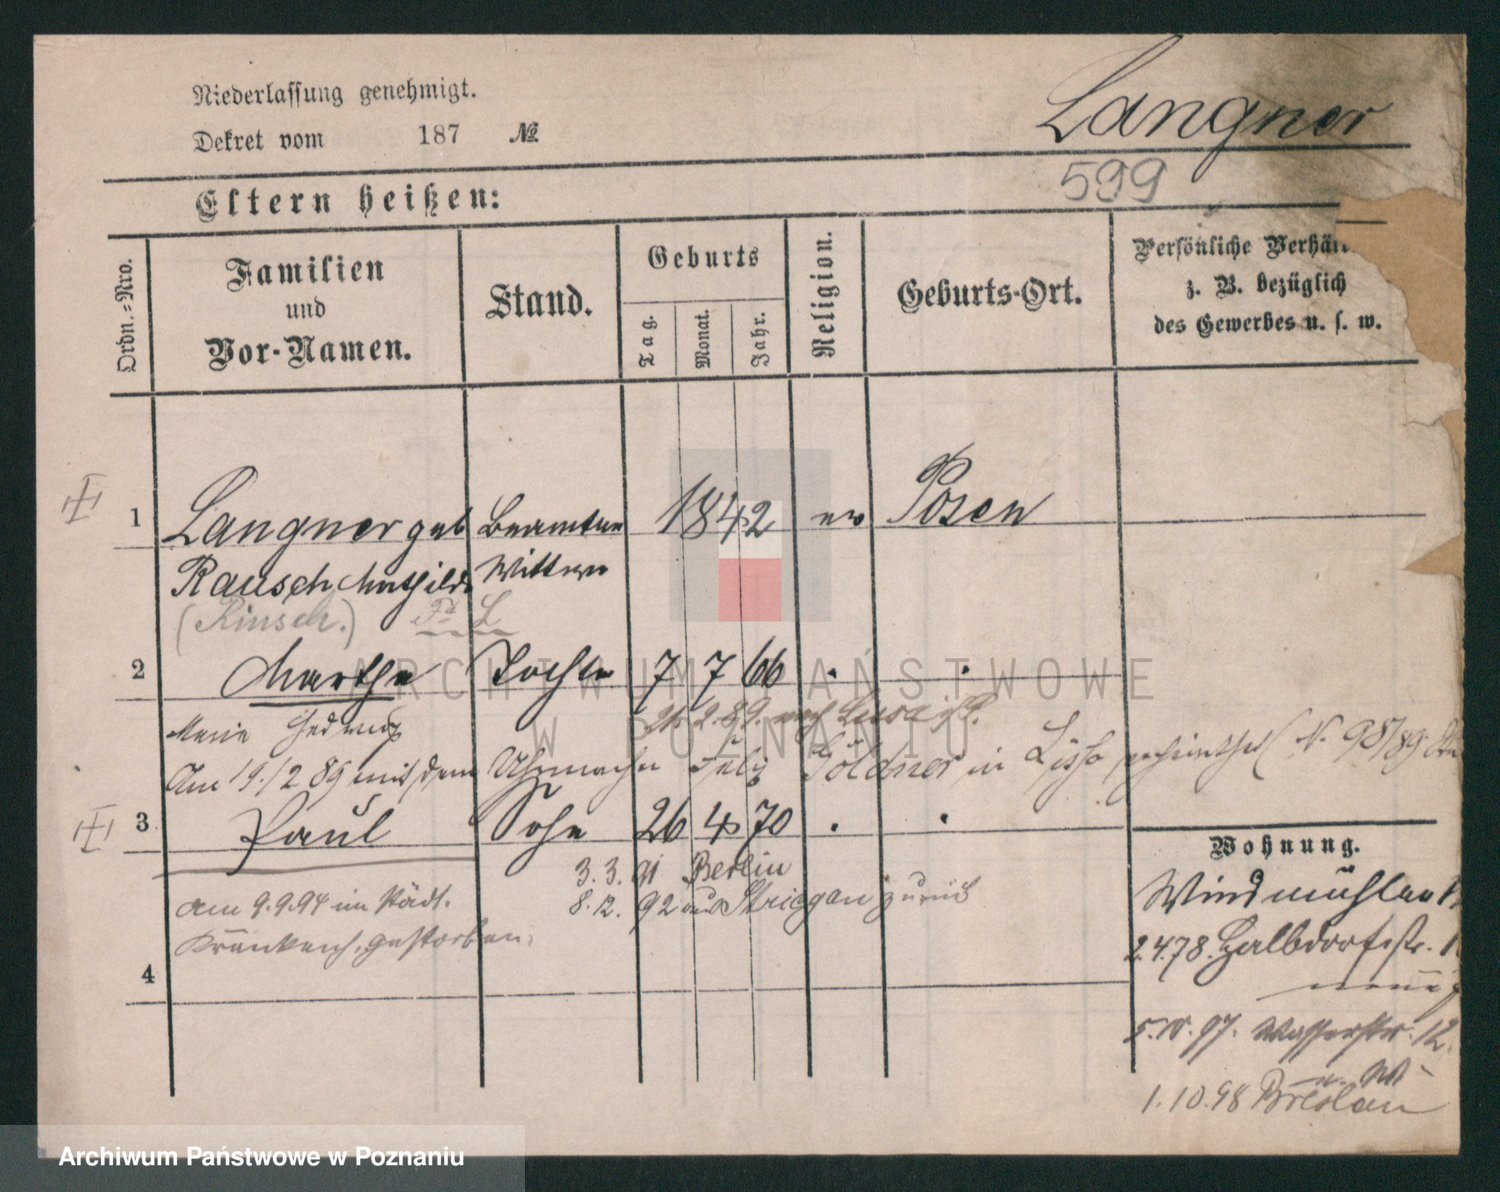 Niederlassung genehmigt.
Dekret vom 187 №
Langner
599
Eltern heißen:
Ordn.=Nro.
Familien und Vor-Namen.
Stand.
Geburts
Tag. Monat. Jahr.
Religion.
Geburts-Ort.
Persönliche Verhäl
z. B. bezüglich
des Gewerbes u. s. w.
1 Langner geb Beamten 1842 ev Posen
Rausch Mathilde Wittwe
(Rinsch.)
2 Marthe Tochter 7 7 66 . .
Marie Hedwig 2. 89. nach
Am 19/2 89 mit dem Uhrmacher Felix Göldner in Lissa
3 Paul Sohn 26 4 70 . .
3.3. 91 Berlin
am 9.9.94 im Städt. 8.12. 92 aus Striegau zurück
Krankenh. gestorben.
4
Wohnung.
Windmühlen
2.4.78. Halbdorfstr.
5.10.97. Wasserstr. 12.
1.10.98 Breslau
ARCHIWUM PAŃSTWOWE
W POZNANIU
Archiwum Państwowe w Poznaniu